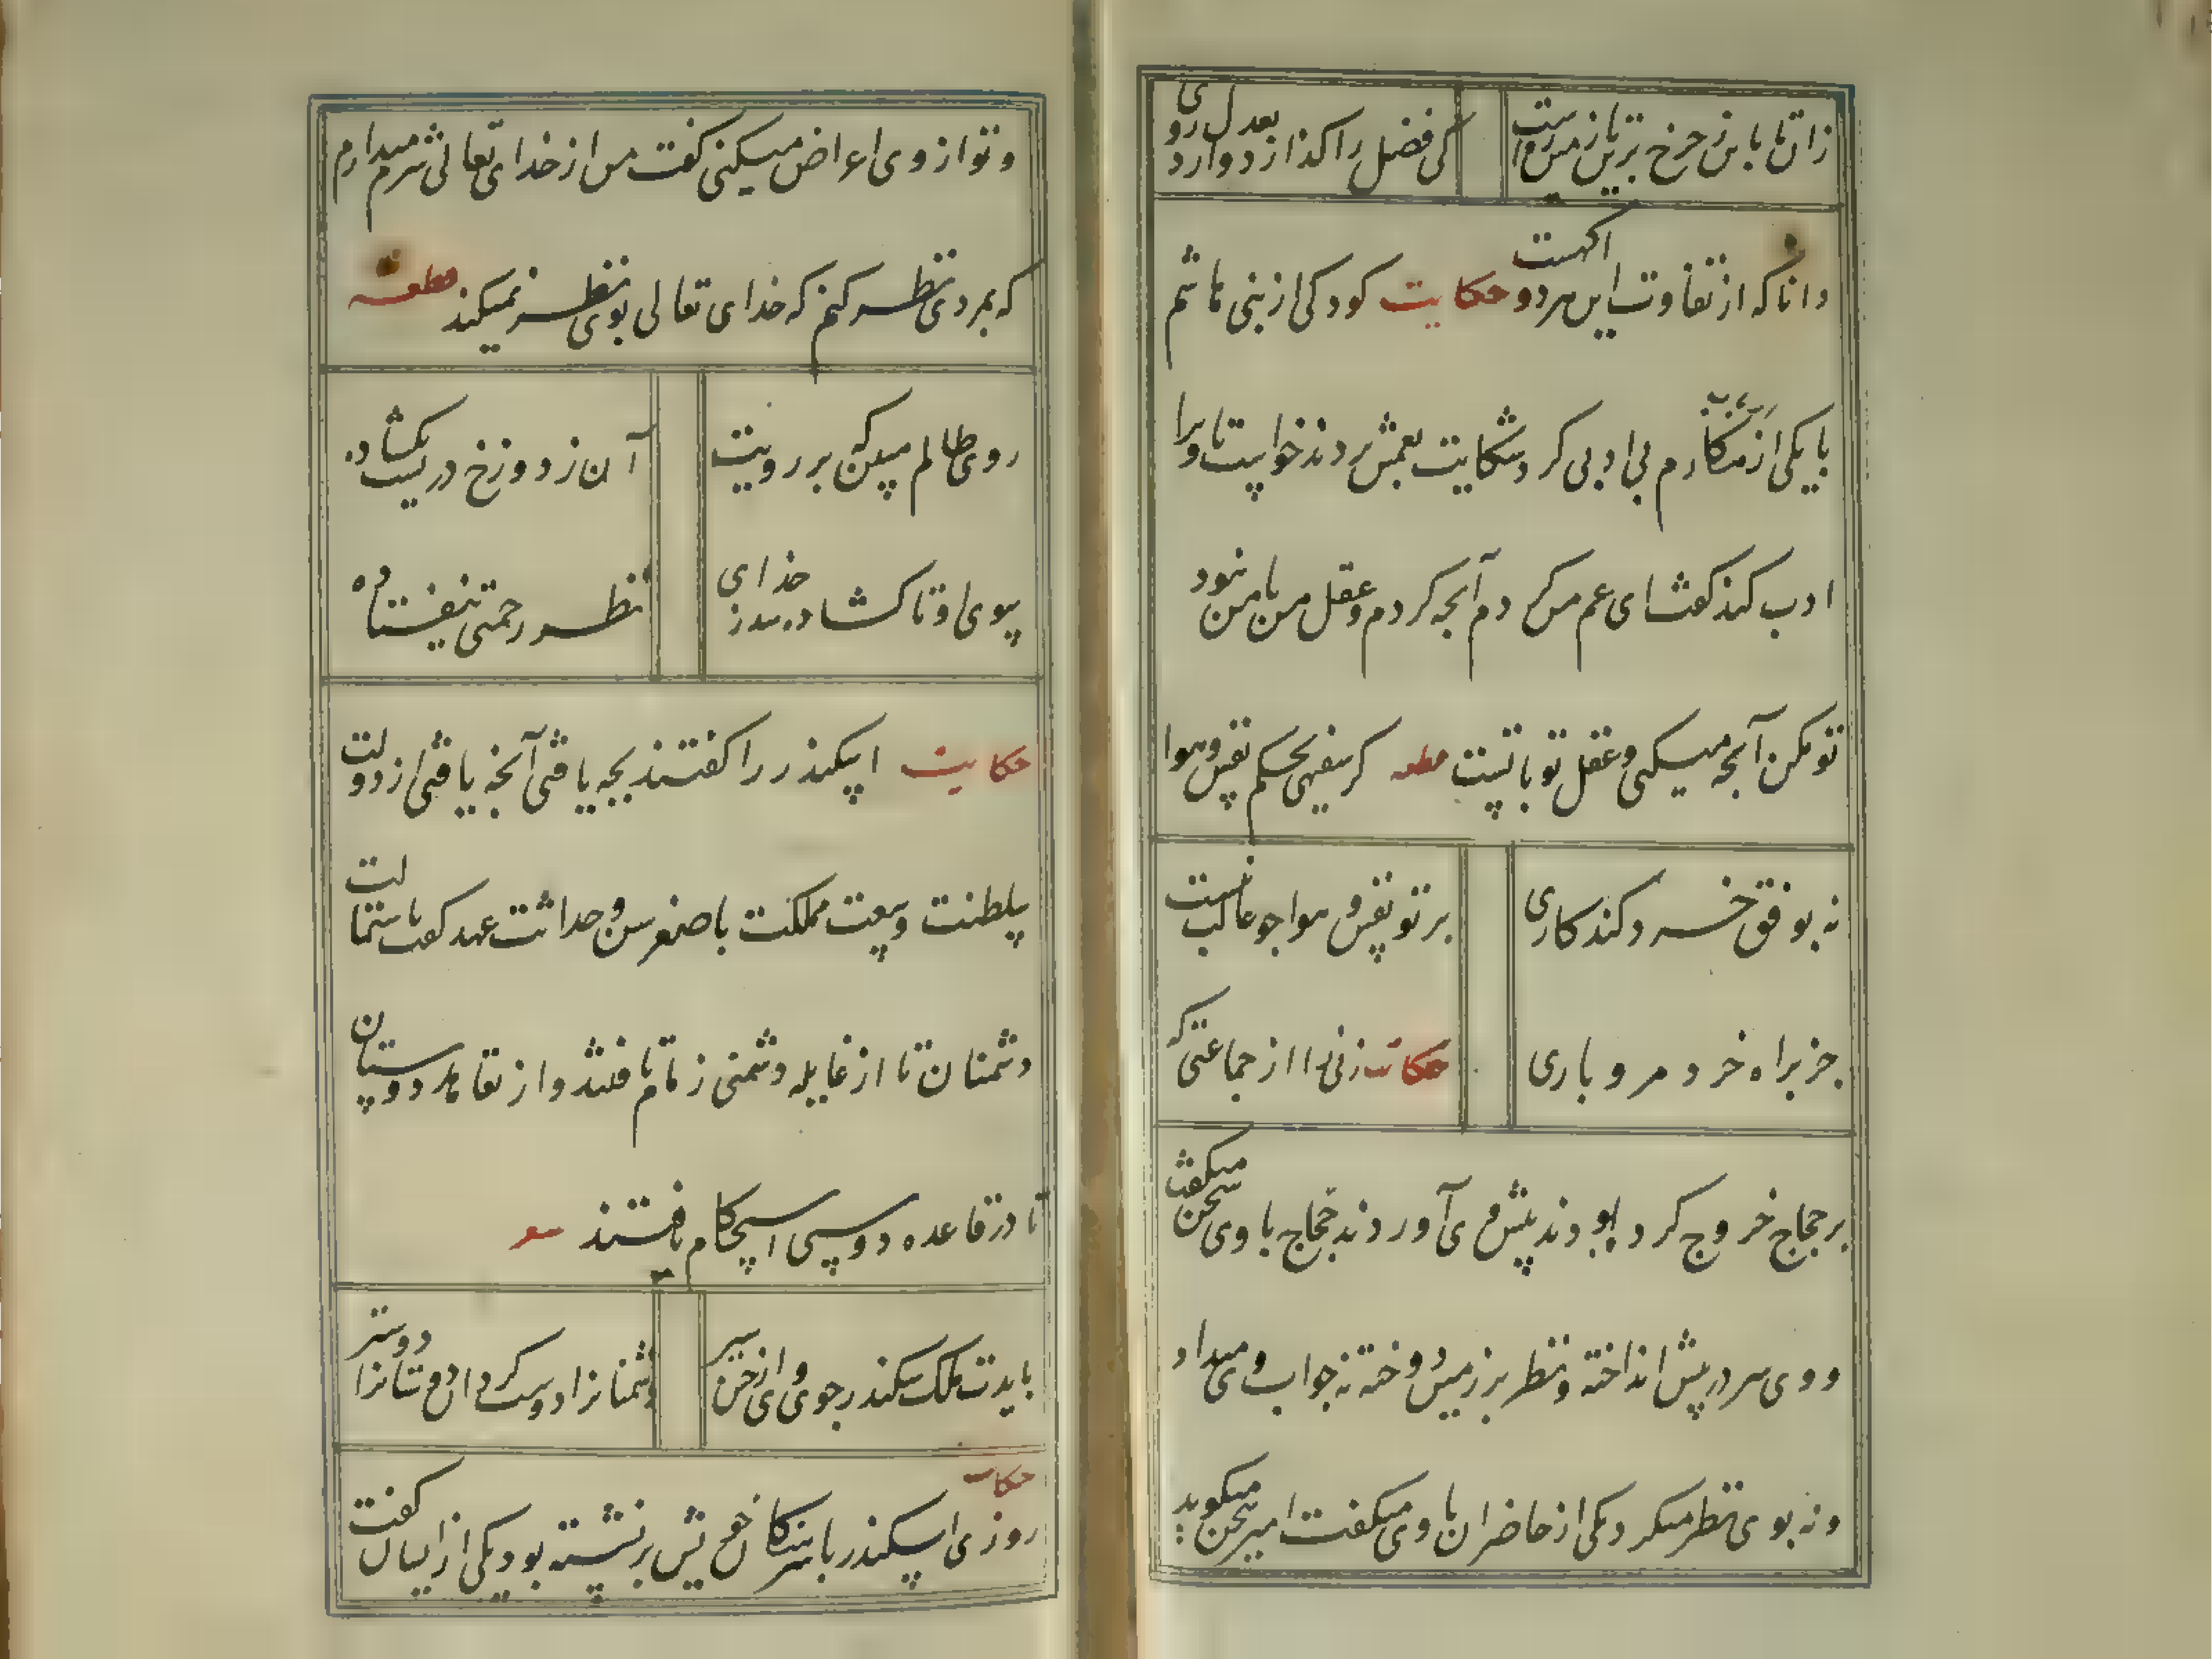 زان تا باین ز چرخ برین تا زمین رهست
کی فضل را گذارد و آرد بعدل روی
دانا که از تفاوت این هر دو آگهست حکایت کودکی از بنی هاشم
با یکی از مکارم بی ادبی کرد شکایت بعمش بردند خواست تا ویرا
ادب کند گفت ای عم من کردم آنچه کردم و عقل من با من نبود
تو مکن آنچه میکنی و عقل تو با تست قطعه گر سفیهی بحکم نفس و هوا
نه بوفق خرد کند کاری
بر تو نفس و هوا چو غالب نیست
جز براه خرد مرو باری
حکایت زنی را از جماعتی که
بر حجاج خروج کرده بودند پیش وی آوردند حجاج با وی سخن میگفت
و وی سر در پیش انداخته و نظر بر زمین دوخته نه جواب وی میداد
و نه بوی نظر میکرد یکی از حاضران با وی میگفت امیر سخن میگوید
و تو از وی اعراض میکنی گفت من از خدای تعالی شرم میدارم
که بمردی نظر کنم که خدای تعالی بوی نظر نمیکند قطعه
روی ظالم مبین که بر رویت
آن ز دوزخ دریست بگشاده
بسوی او تا گشاده خدای
نظر رحمتی نیفتاده
حکایت اسکندر را گفتند بچه یافتی آنچه یافتی از دولت
سلطنت و سعت مملکت با صغر سن و حداثت عهد گفت باستمالت
دشمنان تا از غایله دشمنی زمام تافتند و از تعاهد دوستان
تا در قاعده دوستی استحکام یافتند شعر
بایدت ملک سکندر چون وی از حسن سیر
دشمنانرا دوست گردان دوستانرا دوستر
حکایت
روزی اسکندر با سرهنگان خویش برنشسته بود یکی از ایشان گفت